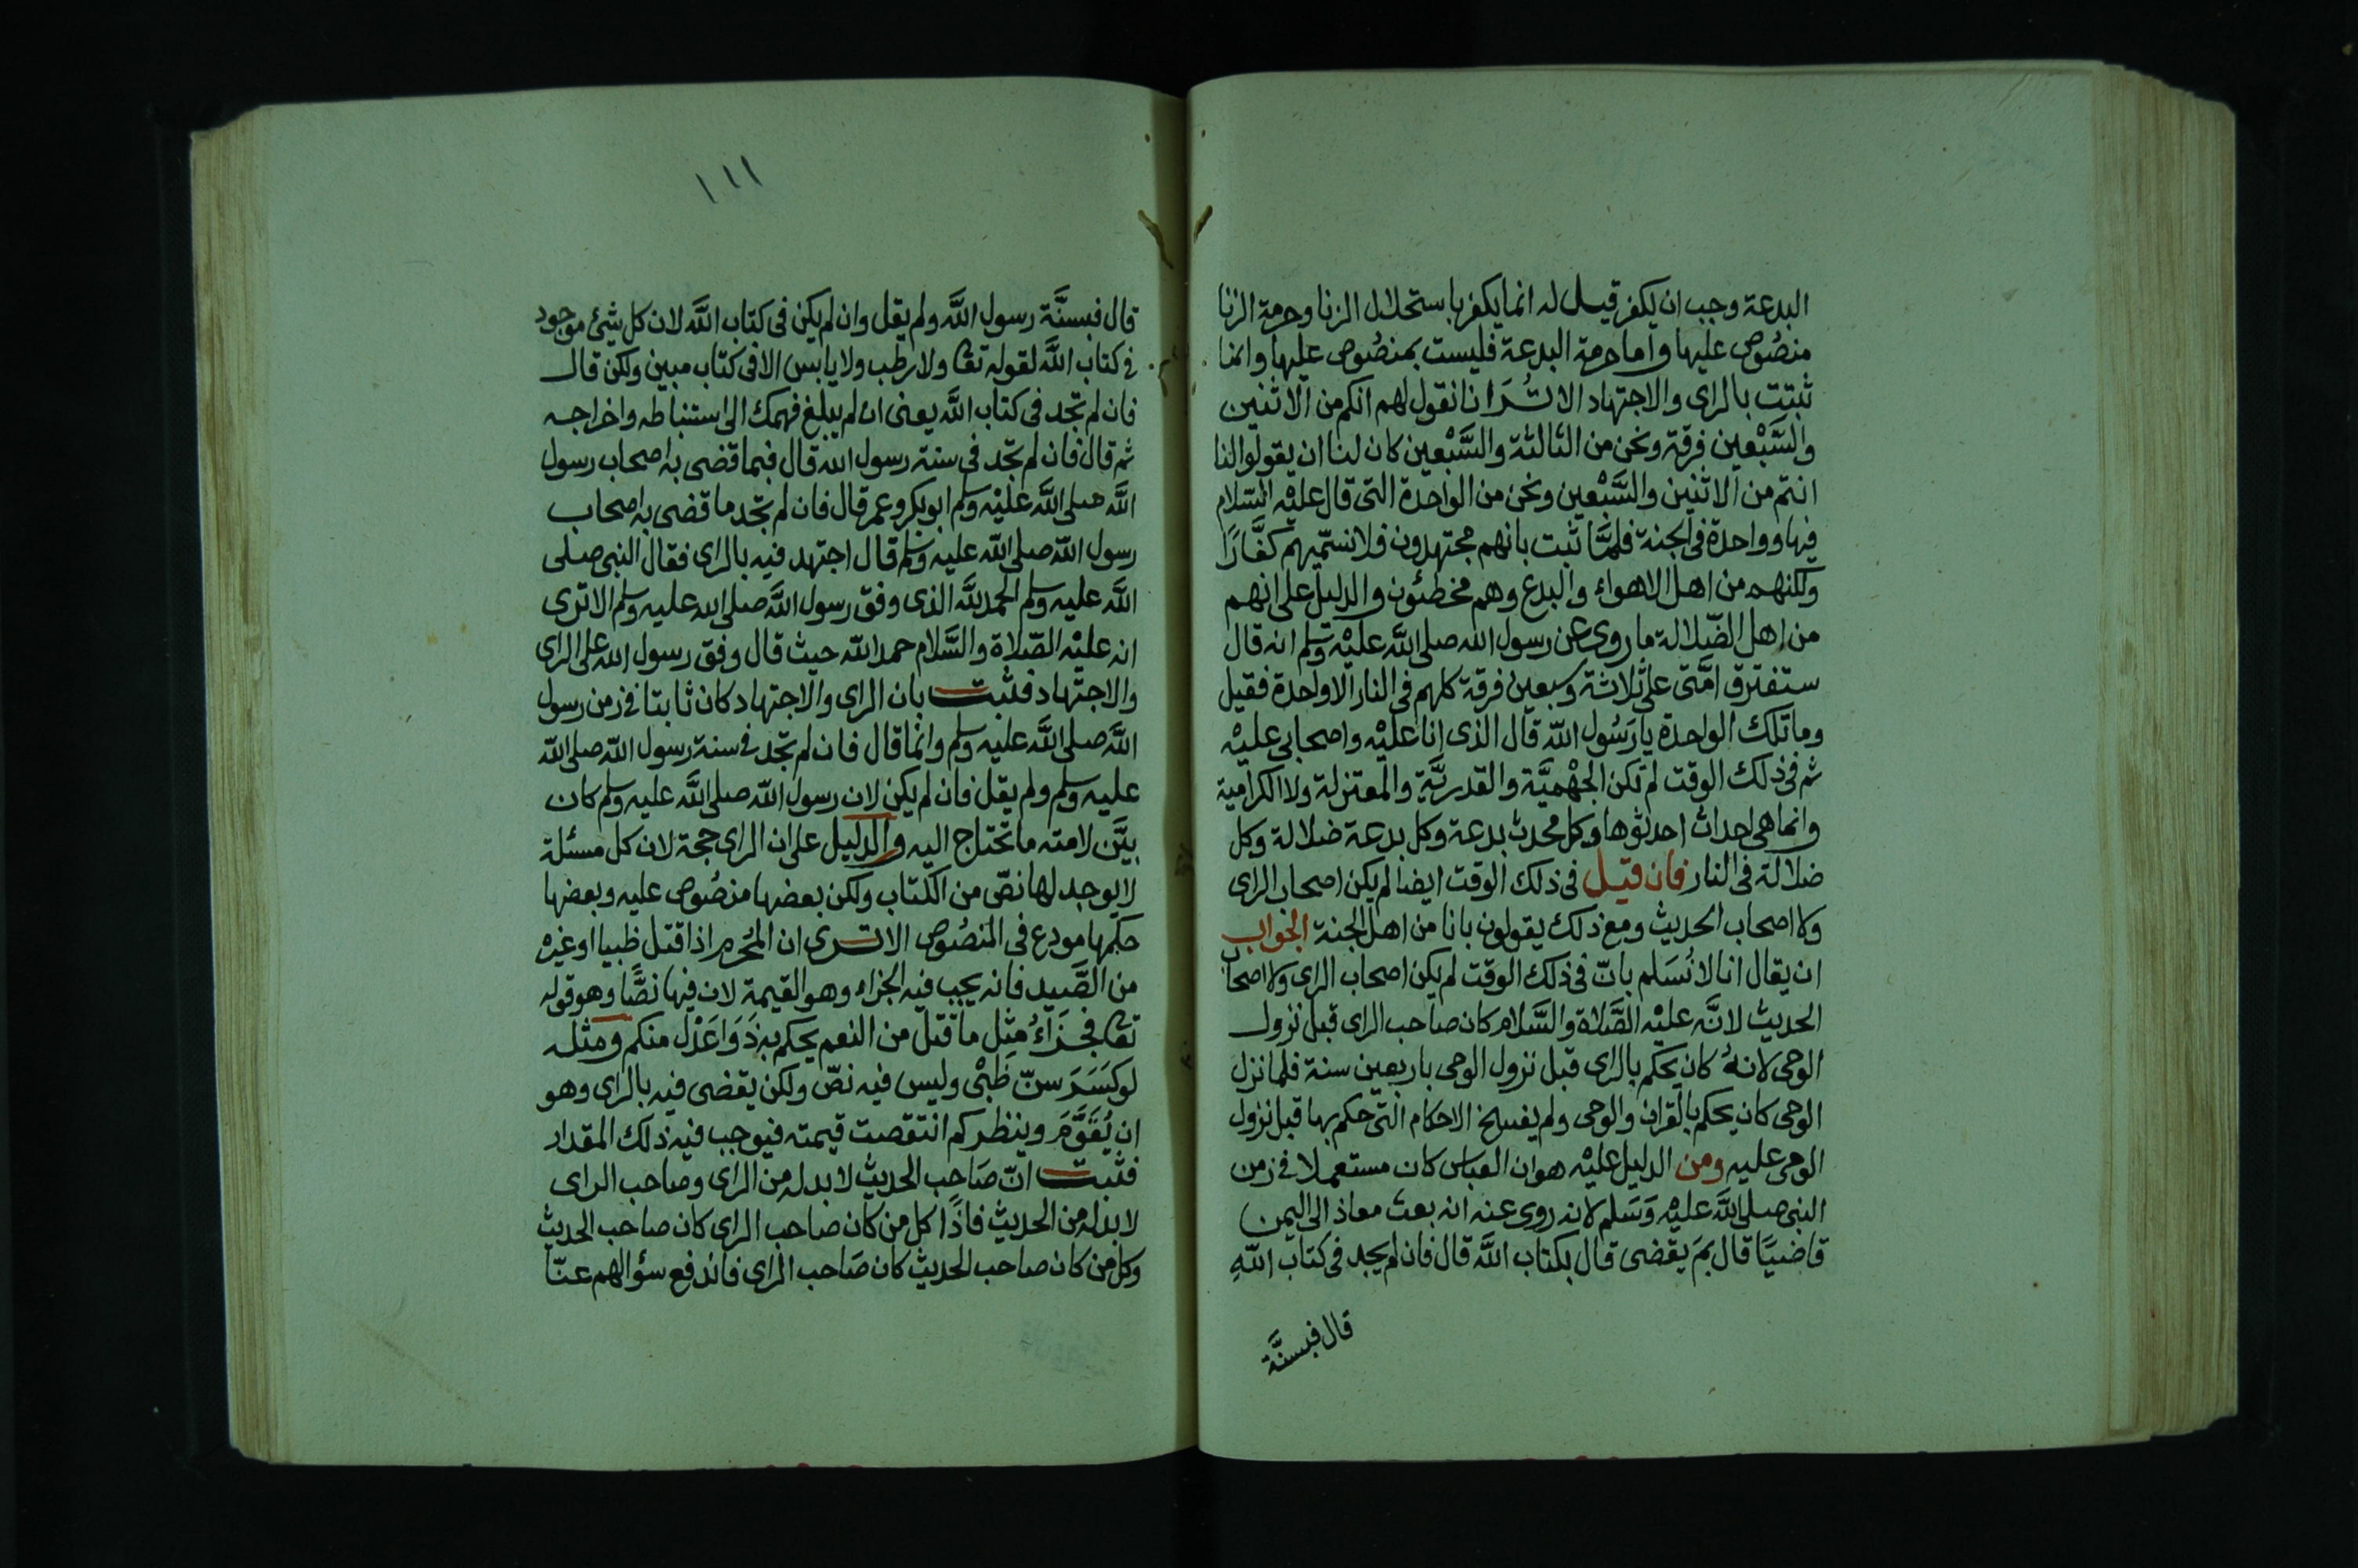 البدعة وجب ان يكفر قيل له انما يكفر باستحلال الزنا وحرمة الزنا
منصُوص عليها واما حرمة البدعة فليست بمنصُوص عليها وانما
ثبتت بالراى والاجتهاد الا تُرَا انا نقول لهم انكم من الاثنين
والسَّبْعين فرقة ونحن من الثالثة والسَّبْعين كان لنا ان يقولوا لنا
انتم من الاثنين والسَّبْعين ونحن من الواحدة التى قال عليْه السّلام
فيها وواحدة فى الجنة فلمَّا ثبت بانهم مجتهدون فلا نسمّيهم كفَّارًا
ولكنهم من اهل الاهواء والبدع وهم مخطئون والدليل على انهم
من اهل الضّلالة ما روى عن رسول الله صلى اللَّه عليْه وسلم انه قال
ستفترق امَّتى على ثلاثة وسبعين فرقة كلهم فى النار الا واحدة فقيل
وما تلك الواحدة يا رَسُول اللّه قال الذى انا عليْه واصحابى عليْه
ثم فى ذلك الوقت لم تكن الجهْميَّة والقدريَّة والمعتزلة ولا الكرامية
وانما هى احداث احدثوها وكل محدث بدعة وكل بدعة ضلالة وكل
ضلالة فى النار فان قيل فى ذلك الوقت ايضا لم يكن اصحاب الراى
ولا اصحاب الحديث ومع ذلك يقولون بانا من اهل الجنة الجواب
ان يقال انا لا نُسَلم بانّ فى ذلك الوقت لم يكن اصحاب الراى ولا اصحاب
الحديث لانَّه عليْه الصَّلاة والسَّلام كان صاحب الراى قبل نزول
الوحى لانهُ كان يحكم بالراى قبل نزول الوحى باربعين سنة فلما نزل
الوحى كان يحكم بالقران والوحى ولم يفسخ الاحكام التى حكم بها قبل نزول
الوحى عليه ومن الدليل عليْه هو ان العباس كان مستعملا فى زمن
النبى صلى اللَّه عليْه وَسَلم لانه روى عنه انه بعث معاذ الى اليمن
قاضيًا قال بمَ يقضى قال بكتاب اللَّه قال فان لم يجد فى كتاب اللّهِ
قال فبسنَّة
١١١
قال فبسنَّة رسول اللَّه ولم يقل وان لم يكن فى كتاب اللَّه لان كل شئ موجود
فى كتاب اللَّه لقوله تعا ولا رطب ولا يابس الا فى كتاب مبين ولكن قال
فان لم تجد فى كتاب اللَّه يعنى ان لم يبلغ فهمك الى استنباطه واخراجه
ثم قال فان لم تجد فى سنة رسول الله قال فبما قضى به اصحاب رسول
اللَّه صلى اللَّه عليْه وسلم ابو بكر وعمر قال فان لم تجد ما قضى به اصحاب
رسول اللّه صلى اللّه عليه وسلم قال اجتهد فيه بالراى فقال النبى صلى
اللَّه عليه وسلم الحمد للَّه الذى وفق رسول اللَّه صلى الله عليه وسلم الا ترى
انه عليْه الصّلاة والسَّلام حمد اللّه حيث قال وفق رسول الله على الراى
والاجتهاد فثبت بان الراى والاجتهاد كان ثابتا فى زمن رسول
اللَّه صلى اللَّه عليه وسلم وانما قال فان لم تجد فى سنة رسول اللّه صلى اللّه
عليه وسلم ولم يقل فان لم يكن لان رسول اللّه صلى اللَّه عليه وسلم كان
بيَّن لامته ما تحتاج اليه والدليل على ان الراى حجة لان كل مسئلة
لا يوجد لها نصّ من الكتاب ولكن بعضها منصُوص عليه وبعضها
حكمها مودع فى المنصُوص الا ترى ان المُحرم اذا قتل ظبيا او غيره
من الصَّيد فانه يجب فيه الجزاء وهو القيمة لان فيها نصًّا وهو قوله
تعا فجَزَاءُ مِثل ما قتل من النعم يحكم به ذَوَا عَدْل منكم ومثله
لو كسَرَ سنّ ظَبْى وليس فيه نصّ ولكن يقضى فيه بالراى وهو
ان يُقَوَّمَ وينظر كم انتقصت قيمته فيوجب فيه ذلك المقدار
فثبت انّ صَاحب الحديث لا بد له من الراى وصاحب الراى
لا بد له من الحديث فاذًا كل من كان صاحب الراى كان صاحب الحديث
وكل من كان صاحب الحديث كان صَاحب الراى فاندفع سؤالهم عنّا